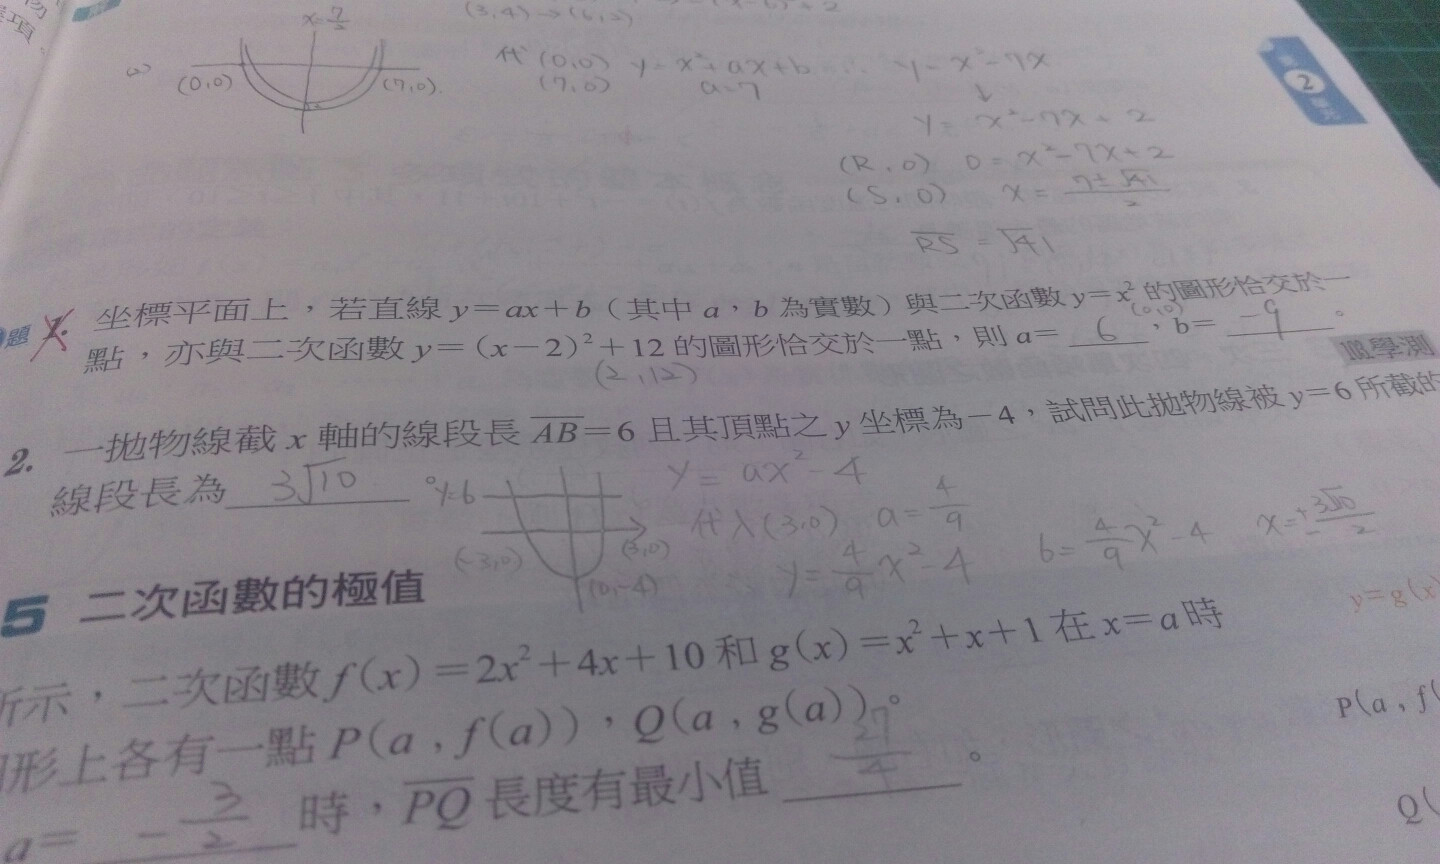 (3,4)→(6,2)
x=7/2
(0,0)
(7,0)
代(0,0) y=x²+ax+b ∴ y=x²-7x
(7,0) a=7
↓
y=x²-7x+2
(R,0) 0=x²-7x+2
(S,0) x=(7±√41)/2
RS=√41
第2單元
題 1. 坐標平面上，若直線 y=ax+b（其中 a，b 為實數）與二次函數 y=x² 的圖形恰交於一
(0,0)
點，亦與二次函數 y=(x-2)²+12 的圖形恰交於一點，則 a= 6 ，b= -9 。
(2,12)
學測
2. 一拋物線截 x 軸的線段長 AB=6 且其頂點之 y 坐標為-4，試問此拋物線被 y=6 所截的
線段長為 3√10 。
y=6
(-3,0)
(3,0)
(0,-4)
y=ax²-4
代入(3,0) a=4/9
y=4/9x²-4
6=4/9x²-4 x=±3√10/2
5 二次函數的極值
所示，二次函數 f(x)=2x²+4x+10 和 g(x)=x²+x+1 在 x=a 時
y=g(x)
形上各有一點 P(a , f(a))，Q(a , g(a))。
P(a , f(
a= -3/2 時，PQ 長度有最小值 27/4 。
Q(